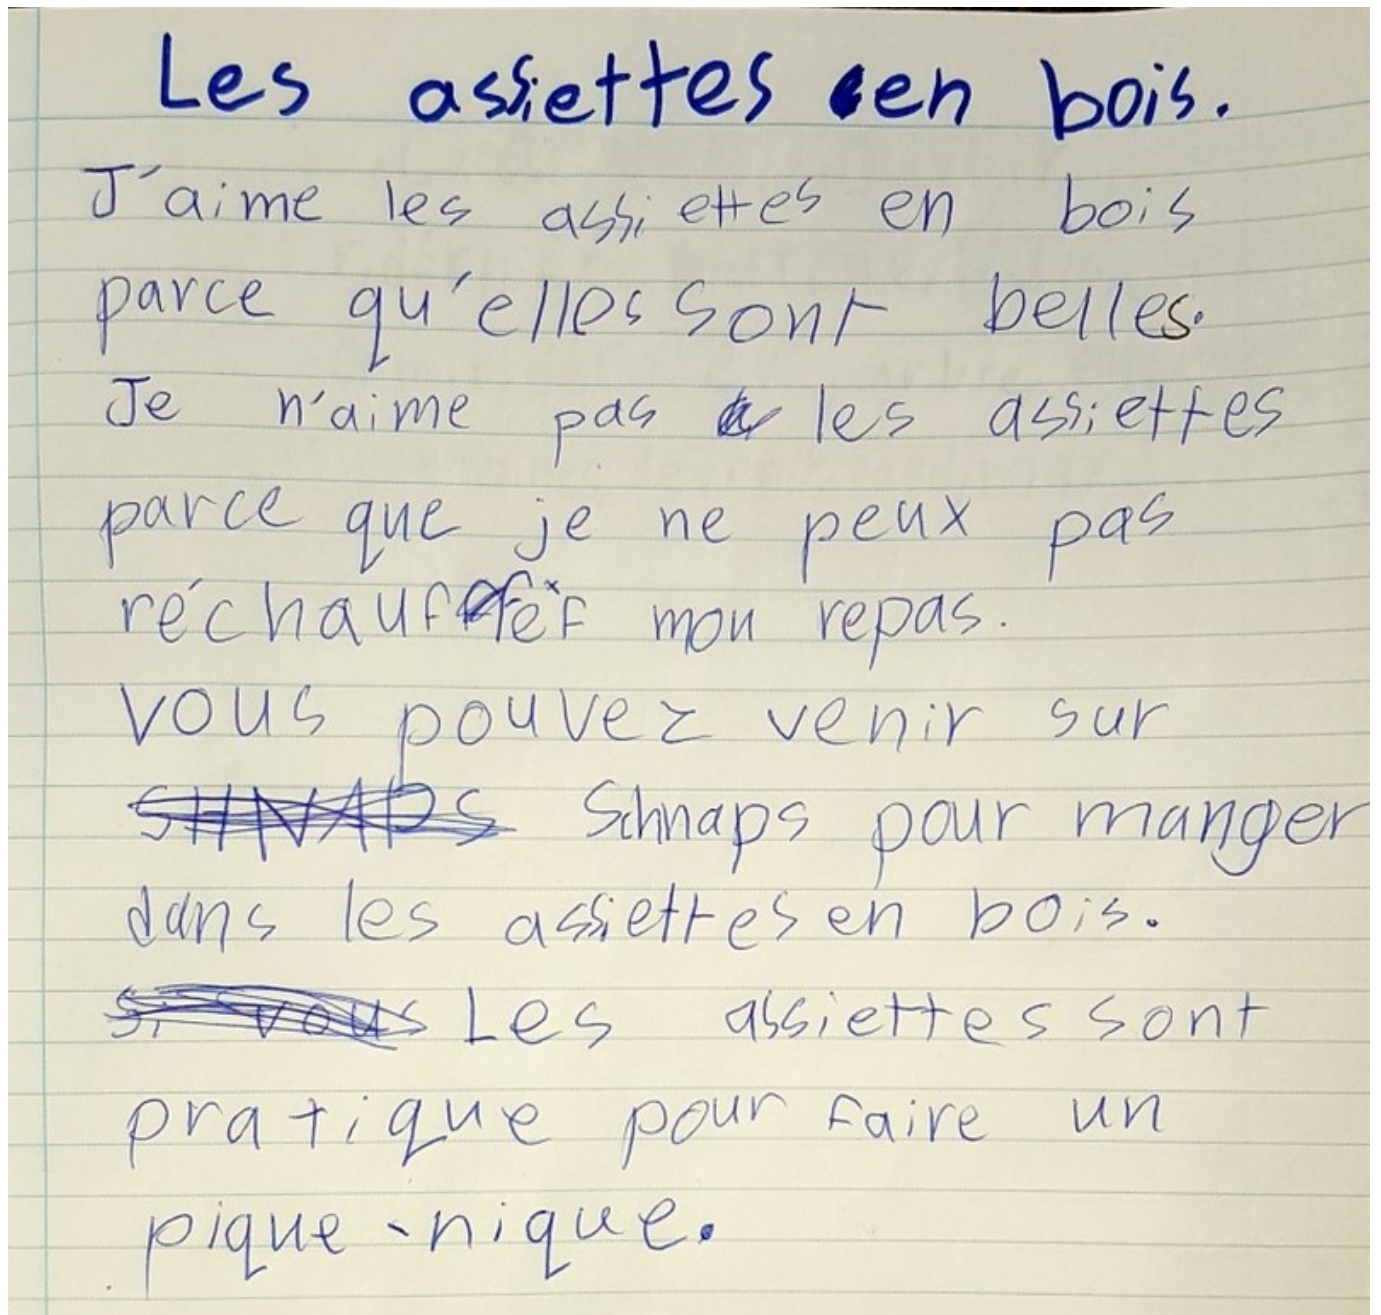 Les assiettes en bois.
J'aime les assiettes en bois
parce qu'elles sont belles.
Je n'aime pas les assiettes
parce que je ne peux pas
réchauffer mon repas.
vous pouvez venir sur
SHNAPS Schnaps pour manger
dans les assiettes en bois.
si vous Les assiettes sont
pratique pour faire un
pique-nique.